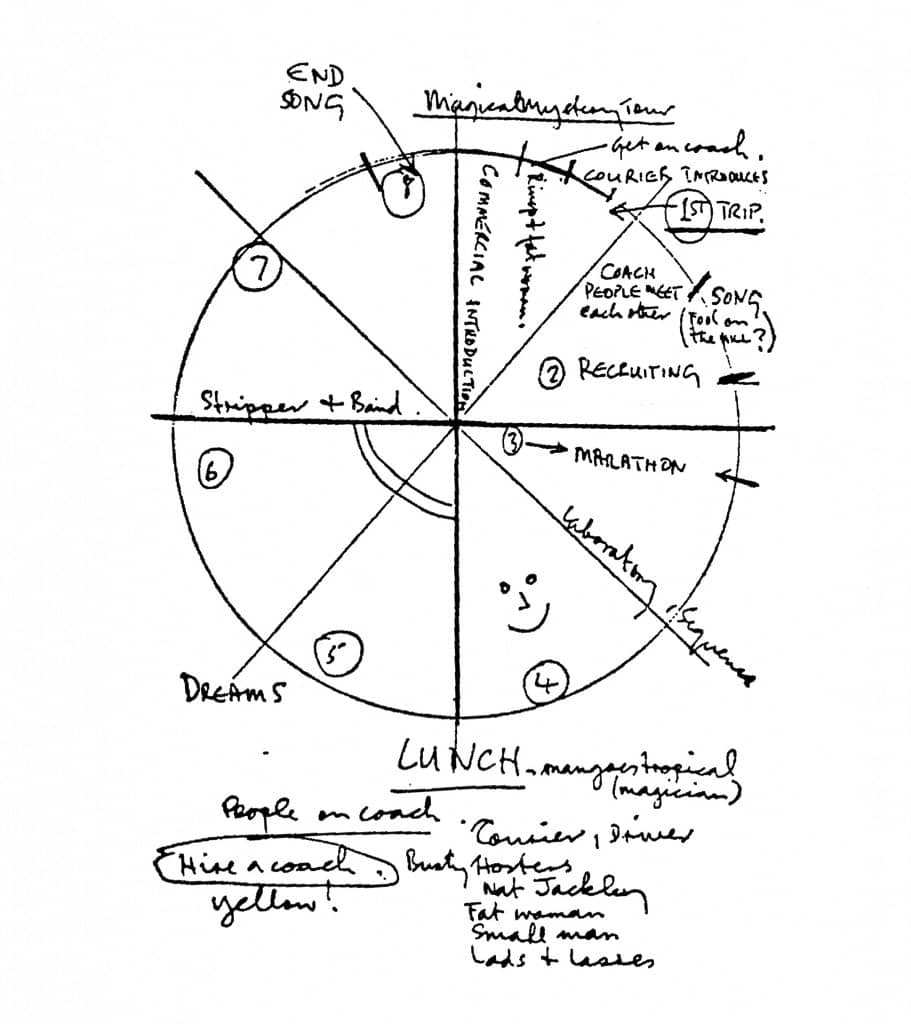 END
SONG
Magical Mystery Tour
Get on coach.
COURIER INTRODUCES
1ST TRIP.
COMMERCIAL INTRODUCTION
Ringo + fat woman.
COACH
PEOPLE MEET
each other
SONG
(Fool on
the Hill?)
2 RECRUITING
3 → MARATHON
Laboratory Sequence
4
LUNCH - mangoes tropical
(magician)
5
DREAMS
6
Stripper + Band.
7
8
People on coach.
Courier, Driver
Hire a coach.
yellow!
Busty Hostess
Nat Jackley
Fat woman
Small man
Lads + Lasses